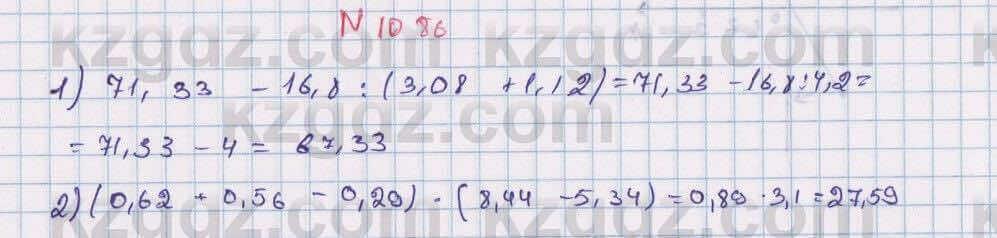 N 1086
1) 71,33 - 16,8 : (3,08 + 1,12) = 71,33 - 16,8 : 4,2 =
= 71,33 - 4 = 67,33
2) (0,62 + 0,56 - 0,29) · (8,44 - 5,34) = 0,89 · 3,1 = 27,59
kzgdz.com
kzgdz.com
kzgdz.com